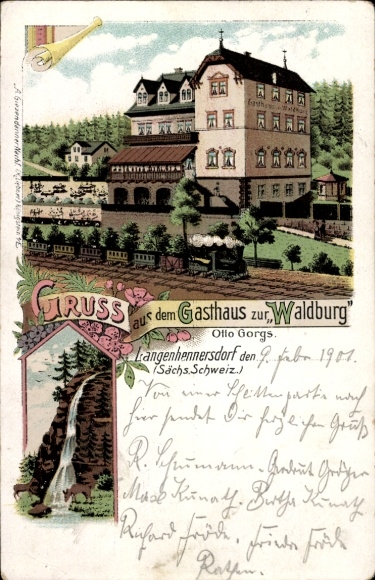 Gasthaus z. Waldburg
GRUSS
aus dem Gasthaus zur „Waldburg"
Otto Gorgs.
Langenhennersdorf den 9. Febr 1901.
(Sächs. Schweiz.)
Von einer Schlittenpartie nach
hier sendet Dir herzlichen Gruß
R. Schumann. Gertrud
Max Kunath. Bertha Kunath
Richard Fröde. Friede Fröde
Rathen.